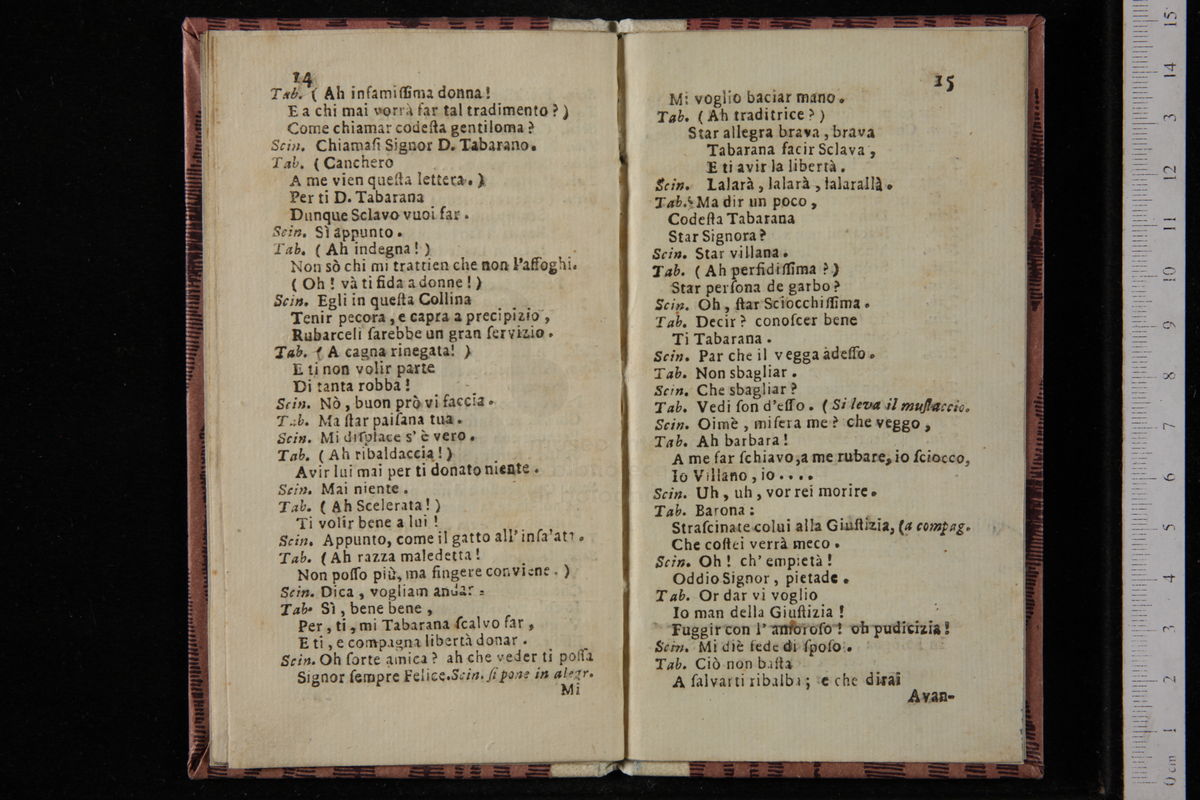 14
Tab. ( Ah infamiſſima donna !
E a chi mai vorrà far tal tradimento ? )
Come chiamar codeſta gentiloma ?
Scin. Chiamaſi Signor D. Tabarano.
Tab. ( Canchero
A me vien queſta lettera. )
Per ti D. Tabarana
Dunque Sclavo vuoi far .
Scin. Sì appunto .
Tab. ( Ah indegna ! )
Non sò chi mi trattien che non l'affoghi.
( Oh ! và ti fida a donne ! )
Scin. Egli in queſta Collina
Tenir pecora , e capra a precipizio ,
Rubarceli ſarebbe un gran ſervizio .
Tab. ( A cagna rinegata! )
E ti non volir parte
Di tanta robba !
Scin. Nò , buon prò vi faccia .
Tab. Ma ſtar paiſana tua .
Scin. Mi diſpiace s' è vero .
Tab. ( Ah ribaldaccia ! )
Avir lui mai per ti donato niente .
Scin. Mai niente .
Tab. ( Ah Scelerata ! )
Ti volir bene a lui !
Scin. Appunto, come il gatto all' inſa'ata .
Tab. ( Ah razza maledetta !
Non poſſo più, ma fingere conviene . )
Scin. Dica , vogliam andar :
Tab. Sì , bene bene ,
Per , ti , mi Tabarana ſcalvo far ,
E ti , e compagna libertà donar .
Scin. Oh ſorte amica ? ah che veder ti poſſa
Signor ſempre Felice. Scin. ſi pone in alegr.
Mi
15
Mi voglio baciar mano .
Tab. ( Ah traditrice ? )
Star allegra brava , brava
Tabarana facir Sclava ,
E ti avir la libertà .
Scin. Lalarà , lalarà , lalarallà .
Tab. Ma dir un poco ,
Codeſta Tabarana
Star Signora ?
Scin. Star villana .
Tab. ( Ah perfidiſſima ? )
Star perſona de garbo ?
Scin. Oh , ſtar Sciocchiſſima .
Tab. Decir ? conoſcer bene
Ti Tabarana .
Scin. Par che il vegga adeſſo .
Tab. Non sbagliar .
Scin. Che sbagliar ?
Tab. Vedi ſon d'eſſo . ( Si leva il muſtaccio.
Scin. Oimè , miſera me ? che veggo ,
Tab. Ah barbara !
A me far ſchiavo, a me rubare, io ſciocco,
Io Villano , io . . . .
Scin. Uh , uh , vorrei morire .
Tab. Barona :
Straſcinate colui alla Giuſtizia, (a compag.
Che coſtei verrà meco .
Scin. Oh ! ch' empietà !
Oddio Signor , pietade .
Tab. Or dar vi voglio
Io man della Giuſtizia !
Fuggir con l' amoroſo ! oh pudicizia !
Scin. Mi diè fede di ſpoſo .
Tab. Ciò non baſta
A ſalvarti ribalba ; e che dirai
Avan-